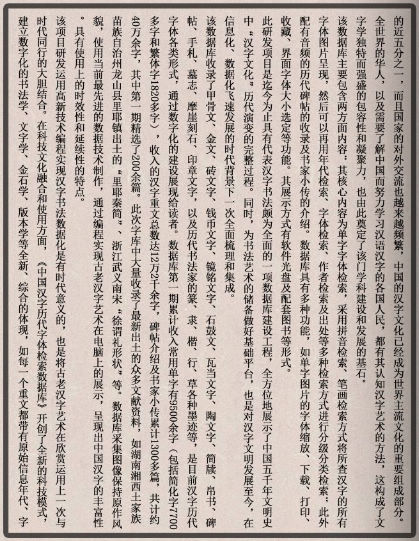 的近五分之一，而且国家的对外交流也越来越频繁，中国的汉字文化已经成为世界主流文化的重要组成部分。
全世界的华人，以及需要了解中国而努力学习汉语汉字的各国人民，都有其认知汉字艺术的方法，这构成了文
字学独特而强盛的包容性和凝聚力，也由此奠定了该门学科建设和发展的基石。
该数据库主要包含两方面内容，其核心内容为单字字体检索，采用拼音检索、笔画检索方式将所查汉字的所有
字体图片呈现，然后可以再用年代检索、字体检索、作者检索及出处等多种检索方式进行分级分类检索；此外
配有音频的历代碑帖的收录及书家小传的介绍。数据库具有多种功能，如单字图片的字体缩放、下载、打印、
收藏、界面字体大小选定等功能。其展示方式有软件光盘及配套图书等形式。
此研发项目是迄今为止具有代表汉字书法颇为全面的一项数据库建设工程，全方位地展示了中国五千年文明史
中“汉字文化”历代演变的完整过程。同时，为书法艺术的储备做好基础平台，也是对汉字文明发展至今，在
信息化、数据化飞速发展的时代背景下一次全面梳理和集成。
该数据库收录了甲骨文、金文、砖文字、钱币文字、镜铭文字、石鼓文、瓦当文字、陶文字、简牍、帛书、碑
帖、手札、墓志、摩崖刻石、印章文字，以及历代书法家的篆、隶、楷、行、草各种墨迹等，是目前汉字历代
字体各类形式，通过数字化的建设展现给读者。数据库第一期累计收入常用单字有9500余字（包括简化字7700
多字和繁体字1820多字），收入的汉字重文总数达12万2千余字，碑帖介绍及书家小传累计1300多篇，共计约
40万余字，其中第一期精选了200余篇，此次字库中大量收录了最新出土的众多文献资料，如湖南湘西土家族
苗族自治州龙山县里耶镇出土的“里耶秦简”、浙江武义南宋“徐谓礼形状”等。数据库采集图像保持原作风
貌，使用当前最先进的数据技术制作，通过编程实现古老汉字艺术在电脑上的展示，呈现出中国汉字的丰富性
。具有使用上的时效性和延续性的特点。
该项目研发运用高新技术编程实现汉字书法数据化是有时代意义的，也是将古老汉字艺术在欣赏运用上一次与
时代同行的大胆结合。在科技文化融合和使用方面，《中国汉字历代字体检索数据库》开创了全新的科技模式，
建立数字化的书法学、文字学、金石学、版本学等全新、综合的体现，如每一个重文都带有原始信息年代、字